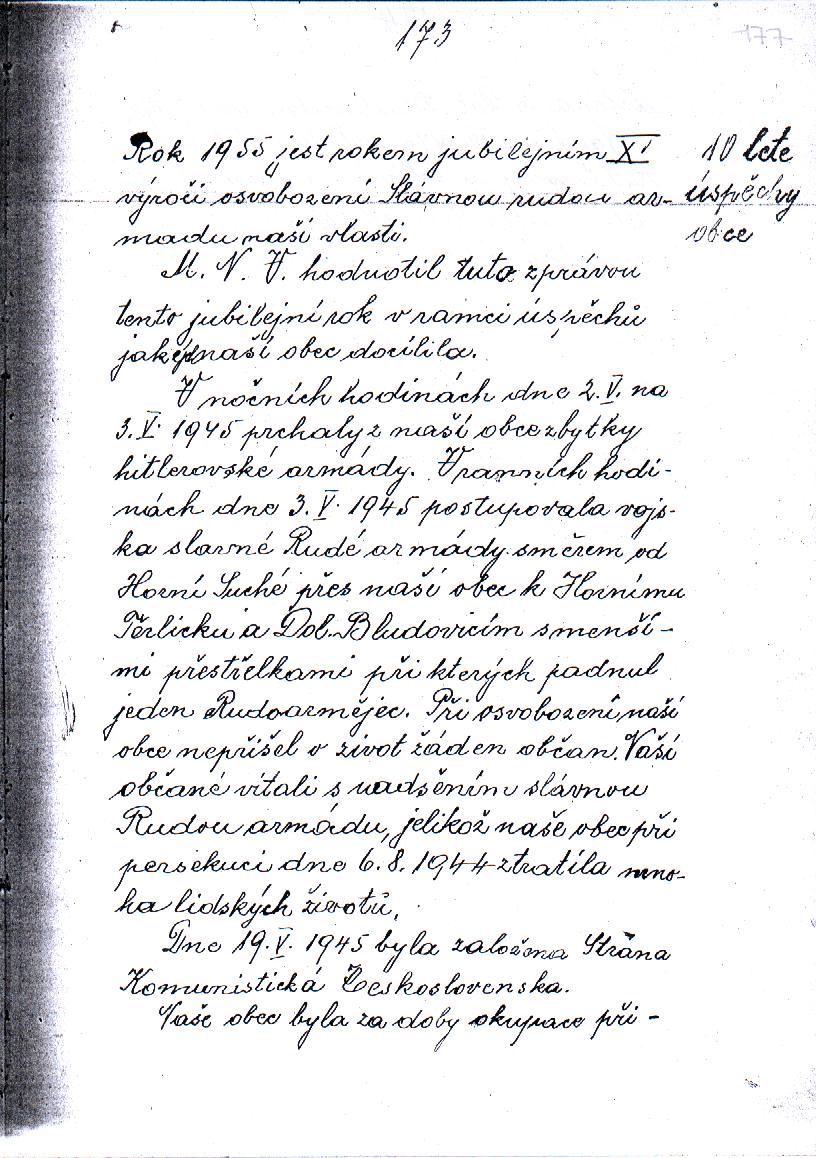 173
177
Rok 1955 jest rokem jubilejním X'
výročí osvobození Slávnou rudou ar-
madu naší vlasti.
10 lete
úspěchy
obce
M. N. V. hodnotil tuto zprávou
tento jubilejní rok v ramci úspěchů
jaké naší obec docílila.
V nočních hodinách dne 2.V. na
3.V. 1945 prchaly z naší obce zbytky
hitlerovské armády. V ranních hodi-
nách dne 3.V. 1945 postupovala vojs-
ka slavné Rudé armády směrem od
Horní Suché přes naší obec k Hornímu
Těrlicku a Dol. Bludovicím s menší-
mi přestřelkami při kterých padnul
jeden Rudoarmějec. Při osvobození naší
obce nepřišel o život žáden občan. Naší
občané vítali s nadšením slávnou
Rudou armádu, jelikož naše obec při
persekuci dne 6.8.1944 ztratila mno-
ha lidských životů,
Dne 19.V. 1945 byla založena Strana
Komunistická Československa.
Naše obec byla za doby okupace při-